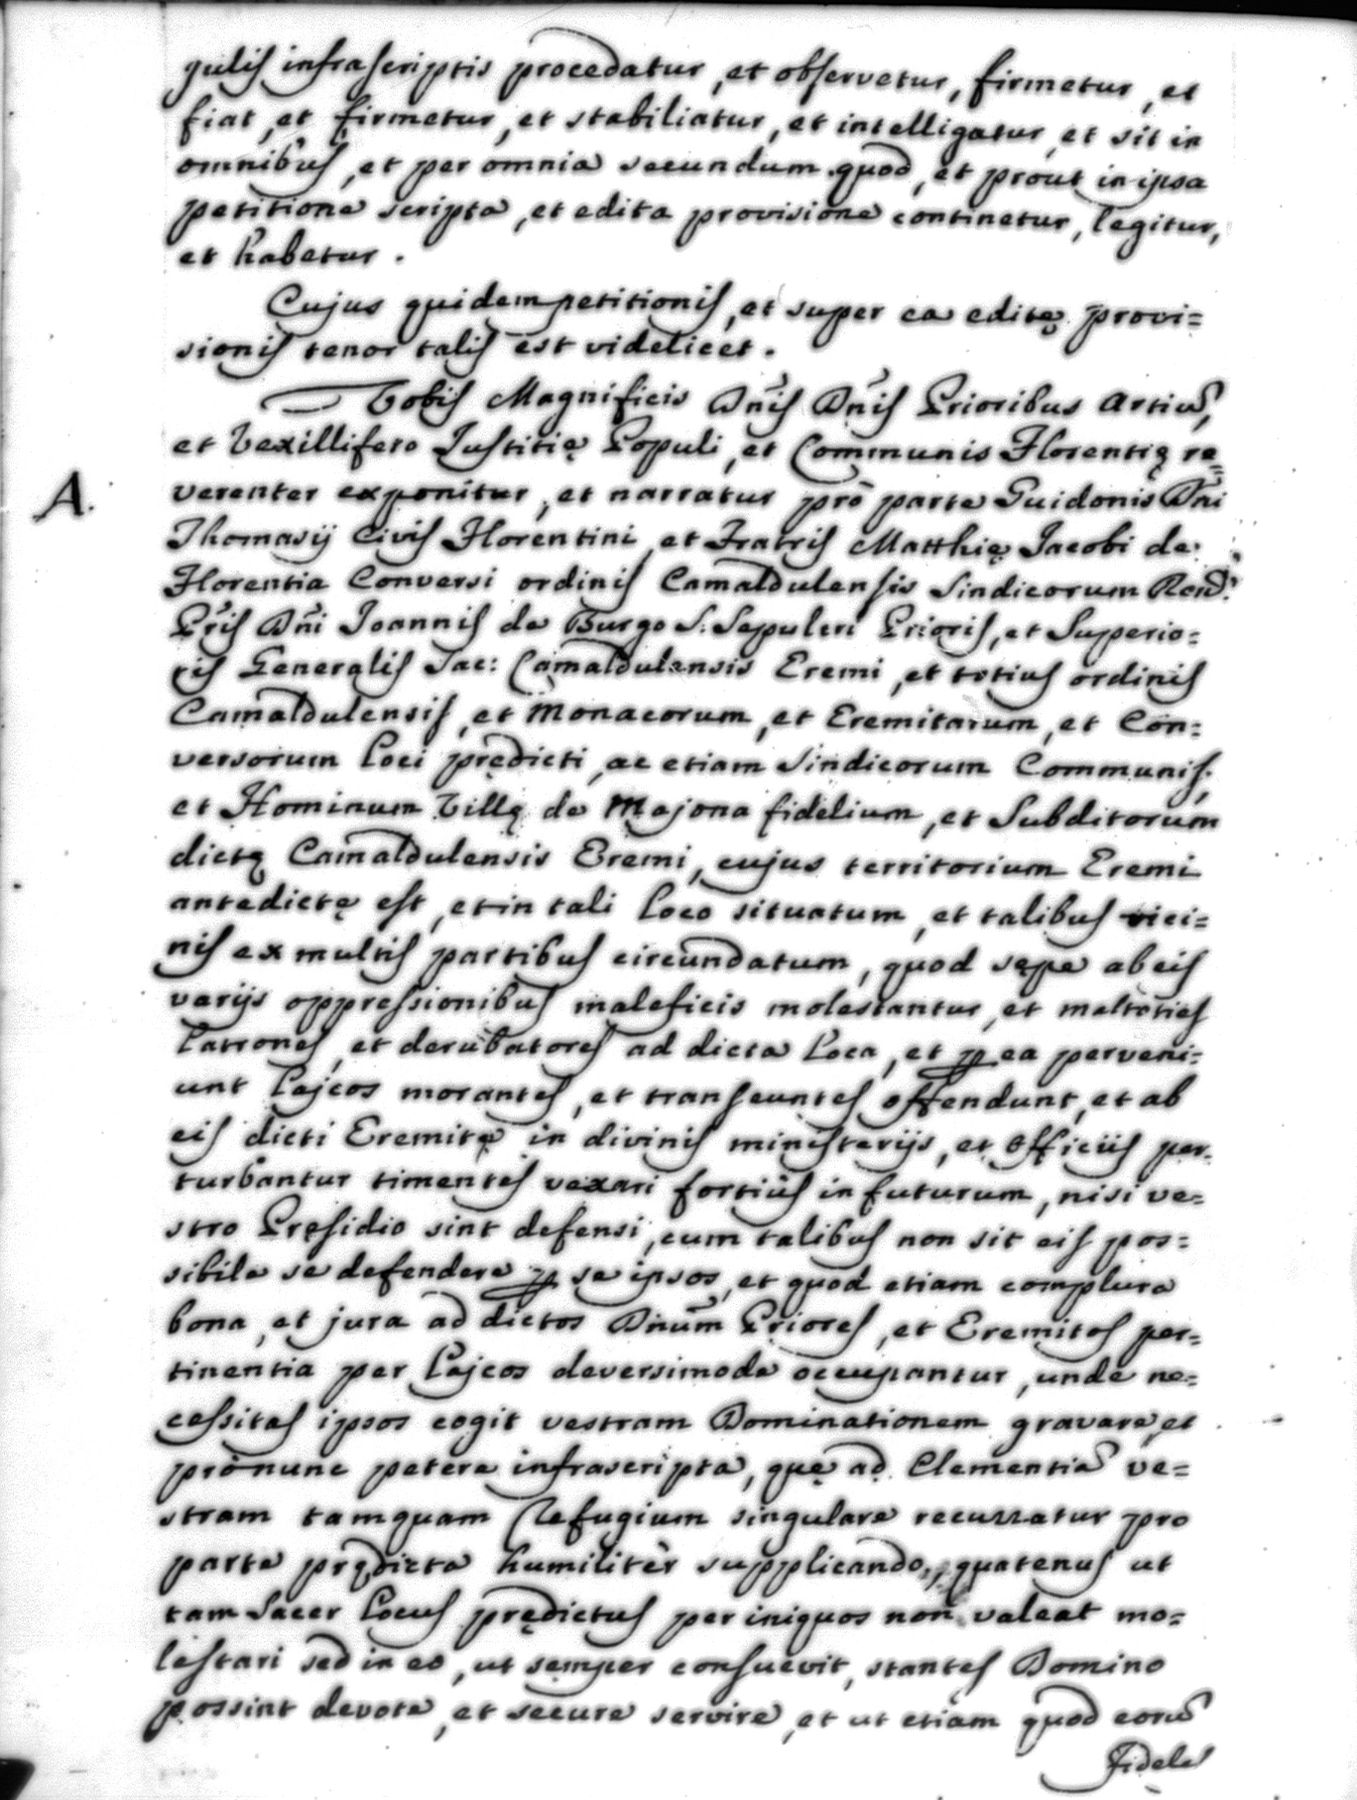 gulis infrascriptis procedatur, et observetur, firmetur, et
fiat, et firmetur, et stabiliatur, et intelligatur, et sit in
omnibus, et per omnia secundum quod, et prout in ipsa
petitione scripta, et edita provisione continetur, legitur,
et habetur.
Cujus quidem petitionis, et super ea editę provi=
sionis tenor talis est videlicet.
Vobis Magnificis Dn̄is Dn̄is Prioribus Artiū,
et Vexillifero Justitię Populi, et Communis Florentię re=
A.
verenter exponitur, et narratur pro parte Guidonis Dn̄i
Thomasij Civis Florentini, et Fratris Matthię Jacobi de
Florentia Conversi ordinis Camaldulensis Sindicorum Rend.
Pr̄is Dn̄i Joannis de Burgo S: Sepulcri Prioris, et Superio=
ris Generalis Sac: Camaldulensis Eremi, et totius ordinis
Camaldulensis, et Monacorum, et Eremitarum, et Con=
versorum Loci prędicti, ac etiam Sindicorum Communis,
et Hominum Villę de Majona fidelium, et Subditorum
dictę Camaldulensis Eremi, cujus territorium Eremi
antedictę est, et in tali Loco situatum, et talibus vici=
nis ex multis partibus circundatum, quod sępe ab eis
varijs oppressionibus maleficis molestantur, et multoties
Latrones, et derubatores ad dicta Loca, et ꝑ ea perveni=
unt Lajcos morantes, et transeuntes offendunt, et ab
eis dicti Eremitę in divinis ministerijs, et officiis per=
turbantur timentes vexari fortiùs in futurum, nisi ve=
stro Pręsidio sint defensi, cum talibus non sit eis pos=
sibile se defendere ꝑ se ipsos, et quod etiam complura
bona, et jura ad dictos Dn̄um Priores, et Eremitas per=
tinentia per Lajcos deversimode occupantur, unde ne=
cessitas ipsos cogit vestram Dominationem gravare, et
pro nunc petere infrascripta, quę ad Clementiā ve=
stram tamquam Refugium singulare recurratur pro
parte prędicta humilitèr supplicando, quatenus ut
tam Sacer Locus prędictus per iniquos non valeat mo=
lestari sed in eo, ut semper consuevit, stantes Domino
possint devote, et secure servire, et ut etiam quod eorū
Fideles